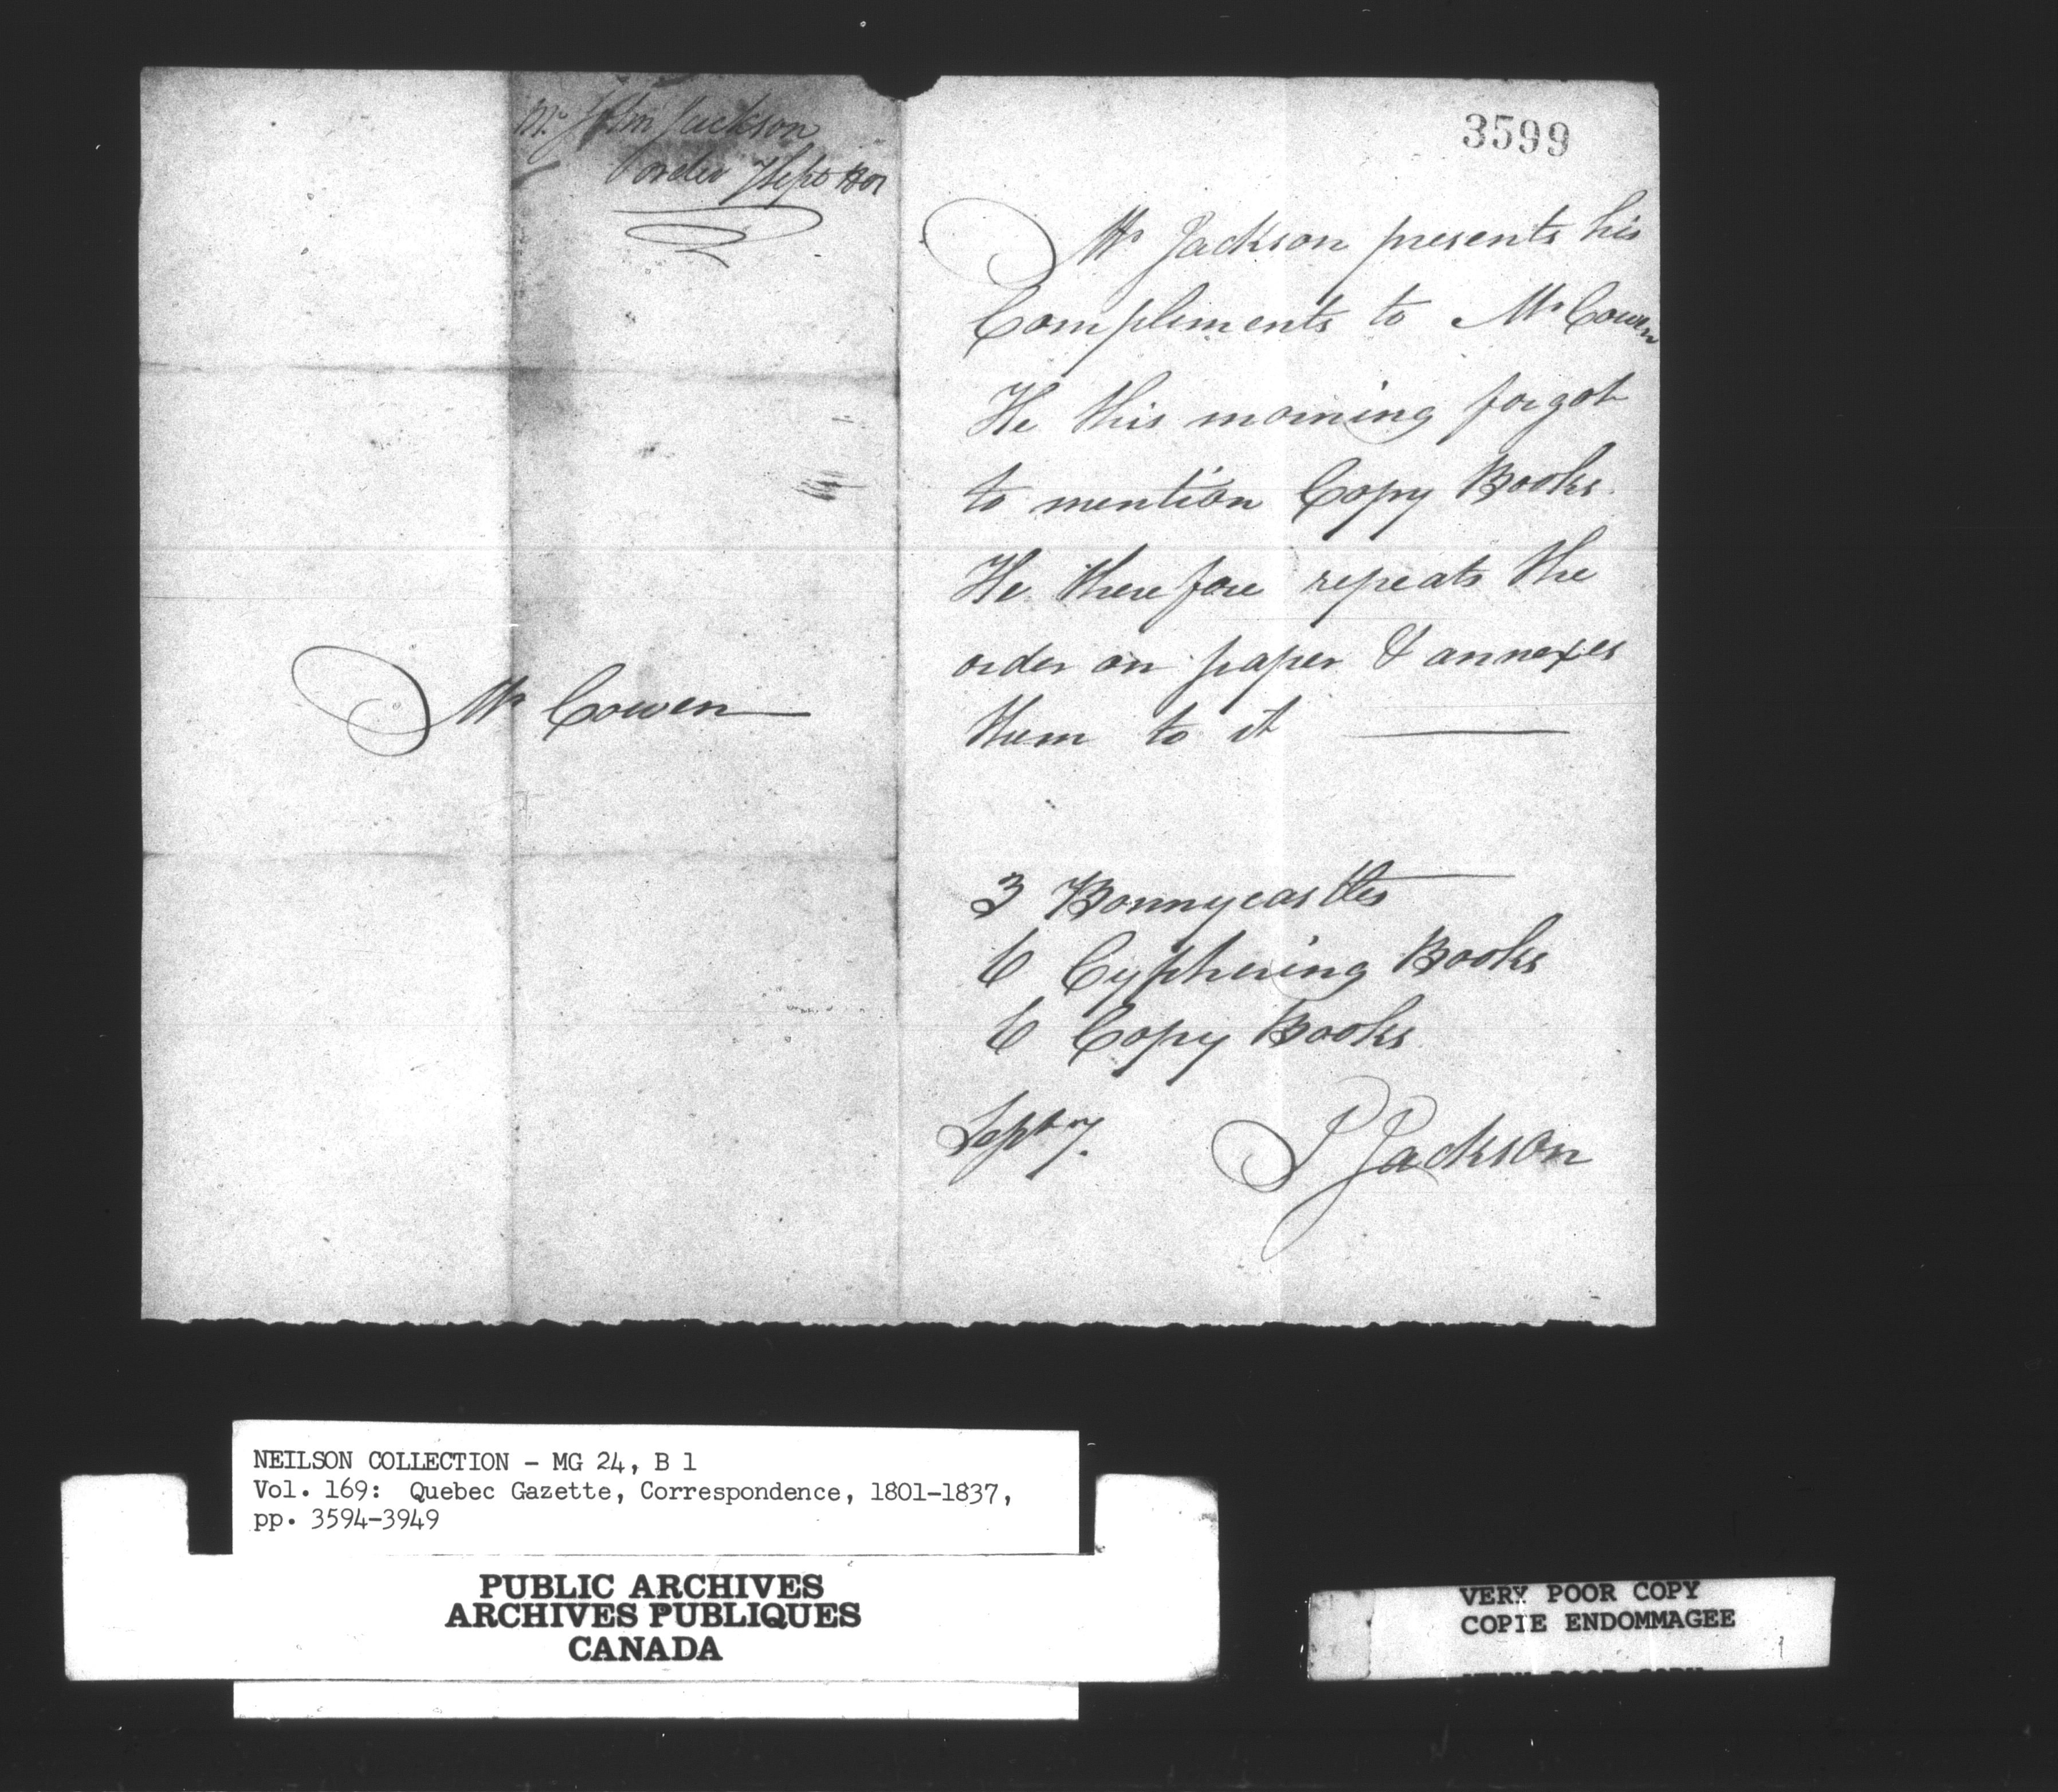 Mr. John Jackson
order 7 Sept 1801
Mr Cowen
3599
Mr Jackson presents his
Compliments to Mr Cowen
He this morning forgot
to mention Copy Books.
He therefore repeats the
order on paper & annexes
them to it
3 Bonnycastles
6 Cyphering Books
6 Copy Books
Sept 7.
J Jackson
NEILSON COLLECTION - MG 24, B 1
Vol. 169: Quebec Gazette, Correspondence, 1801-1837,
pp. 3594-3949
PUBLIC ARCHIVES
ARCHIVES PUBLIQUES
CANADA
VERY POOR COPY
COPIE ENDOMMAGEE
VERY POOR COPY